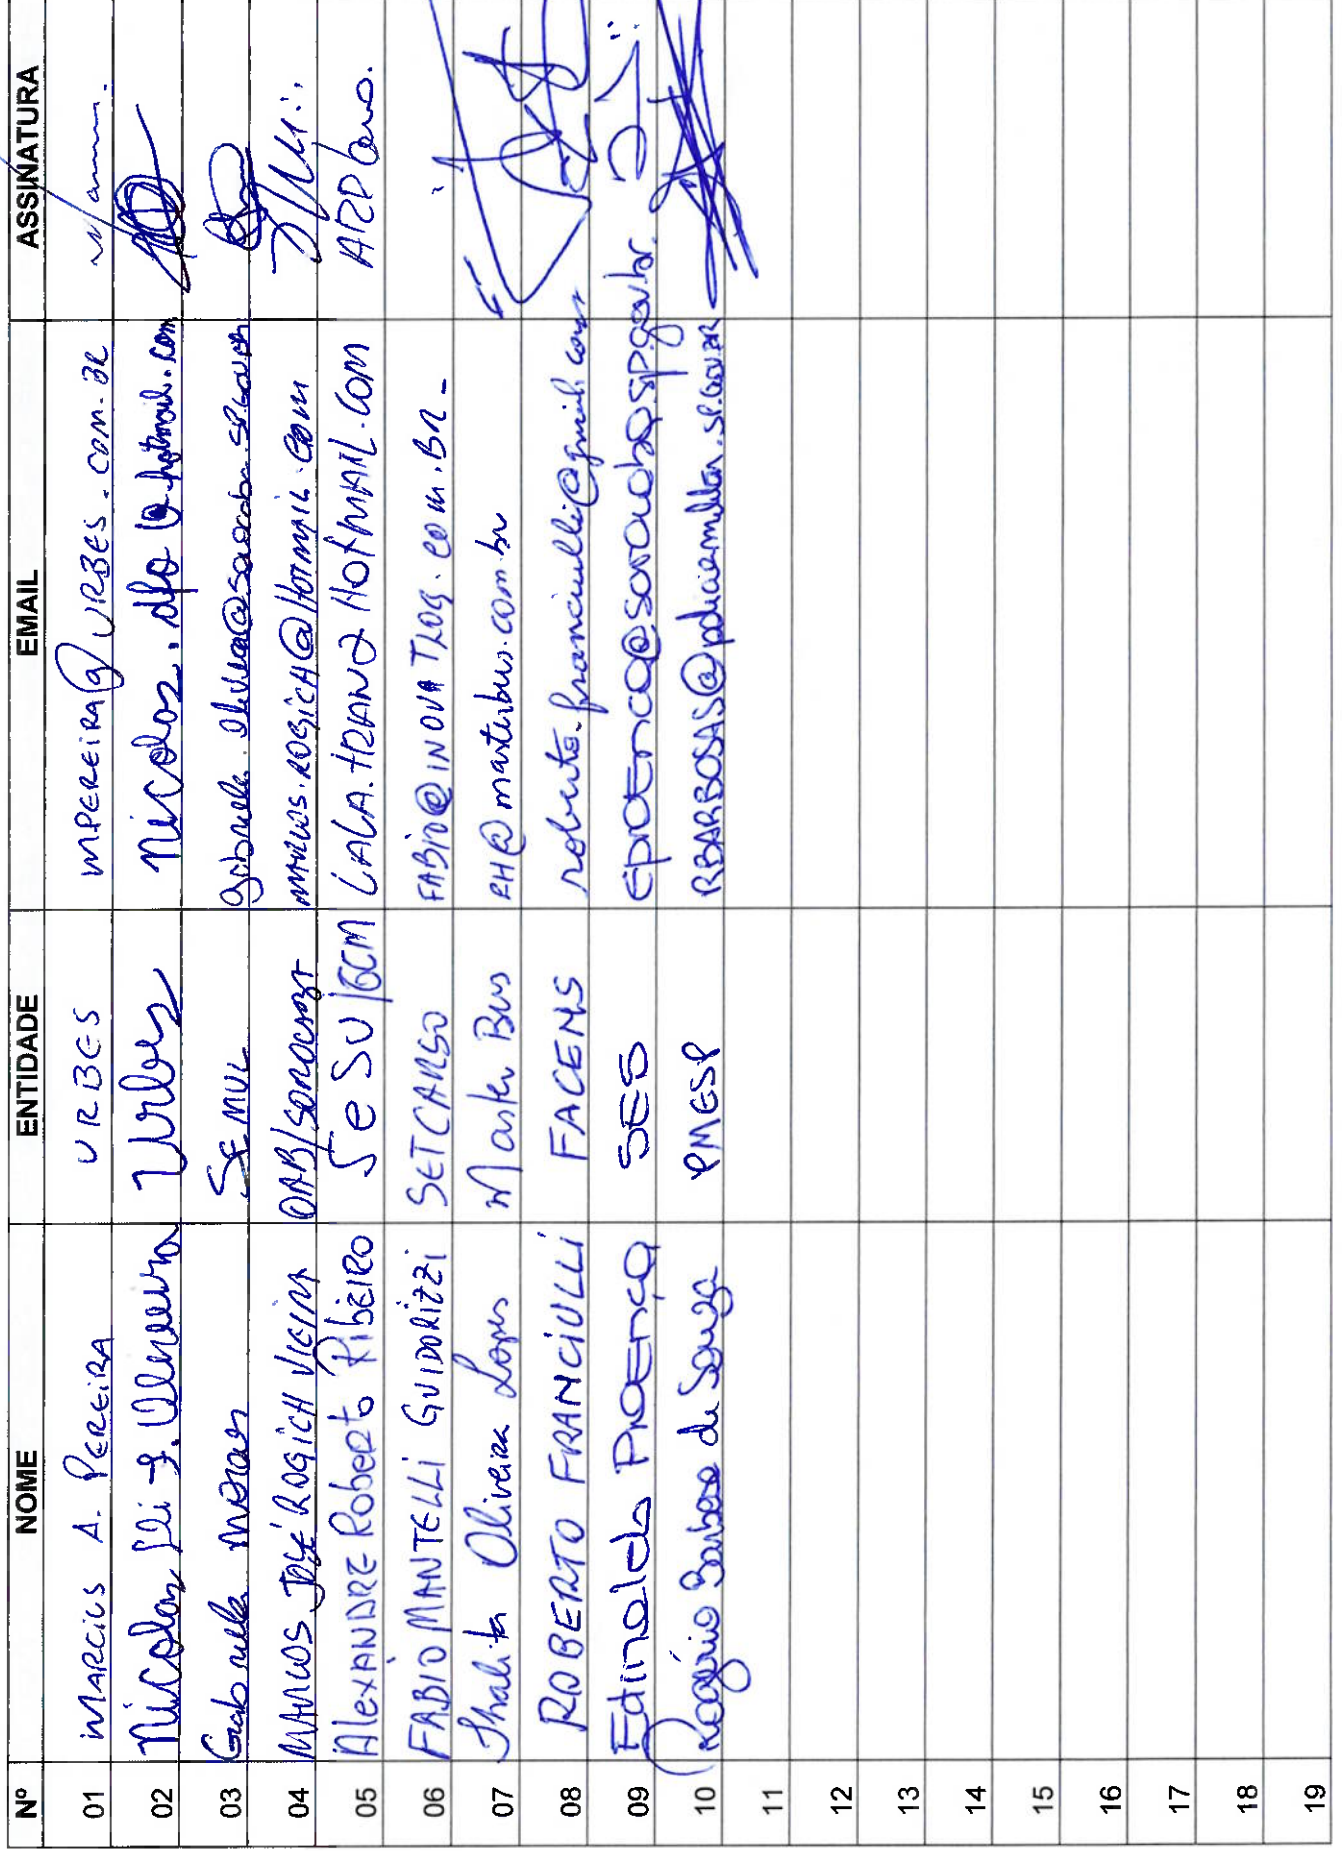 Nº NOME ENTIDADE EMAIL ASSINATURA
01 MARCIUS A. PEREIRA URBES MPEREIRA@URBES.COM.BR
02 Nicolas Urbes nicolas.dfo@hotmail.com
03 Gabrielle SEMUL
04 MARCOS JOSÉ ROGICH VIEIRA OAB/SOROCABA MARCOS.ROGICH@HOTMAIL.COM
05 AlexANDRE Roberto Ribeiro SeSU/GCM
06 FABIO MANTELLI GUIDORIZZI SETCARSO FABIO@INOVATROG.COM.BR
07 Thalita Oliveira Lopes Master Bus RH@masterbus.com.br
08 ROBERTO FRANCIULLI FACENS roberto.franciulli@gmail.com
09 Edinaldo ProEnça SES EproEnca@sorocaba.sp.gov.br
10 Rogério Barbosa de Souza PMESP RBARBOSAS@policiamilitar.SP.GOV.BR
11
12
13
14
15
16
17
18
19